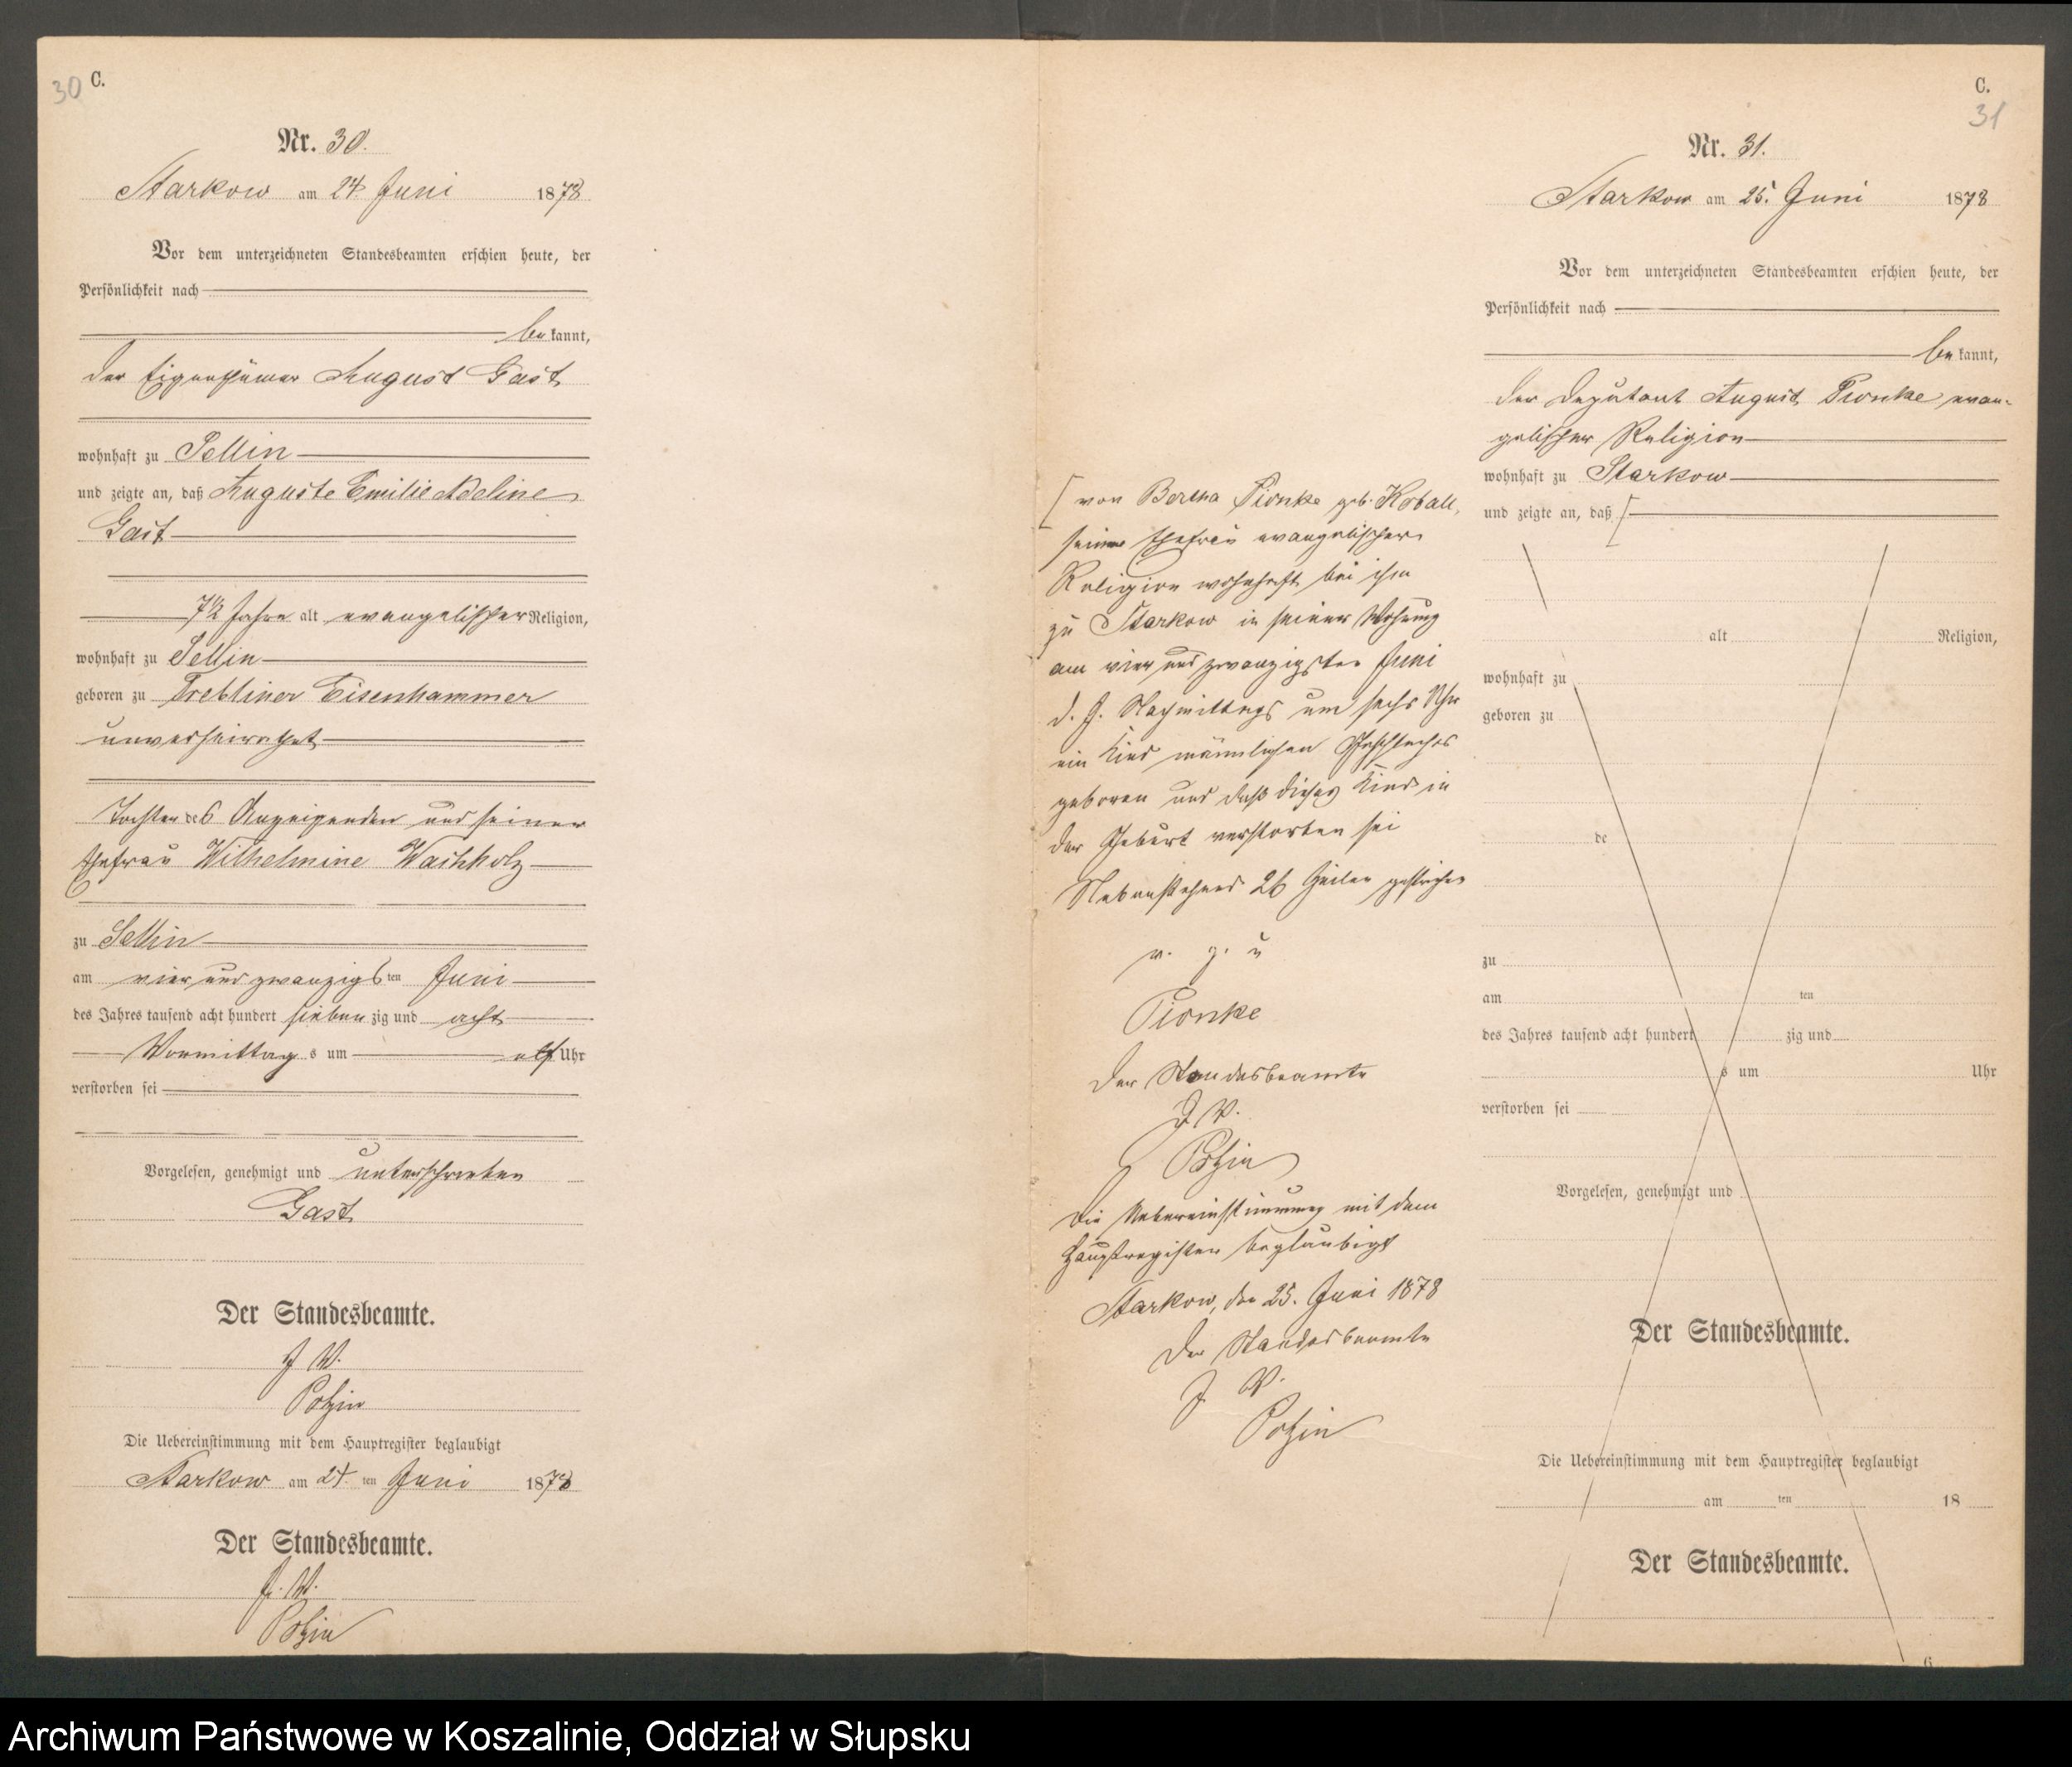 30 C.
Nr. 30.
Starkow am 24. Juni 1878
Vor dem unterzeichneten Standesbeamten erschien heute, der
Persönlichkeit nach
bekannt,
der Eigenthümer August Gast
wohnhaft zu Sellin
und zeigte an, daß Auguste Emilie Adeline
Gast
7½ Jahre alt evangelischer Religion,
wohnhaft zu Sellin
geboren zu Trebliner Eisenhammer
unverheirathet
Tochter des Anzeigenden und seiner
Ehefrau Wilhelmine Waschholz
zu Sellin
am vier und zwanzigsten Juni
des Jahres tausend acht hundert siebenzig und acht
Vormittags um elf Uhr
verstorben sei
Vorgelesen, genehmigt und unterschrieben
Gast
Der Standesbeamte.
J. V.
Die Uebereinstimmung mit dem Hauptregister beglaubigt
Starkow am 24. ten Juni 1878
Der Standesbeamte.
J. V.
C.
31
Nr. 31.
Starkow am 25. Juni 1878
Vor dem unterzeichneten Standesbeamten erschien heute, der
Persönlichkeit nach
bekannt,
der Deputant August Pionke evan-
gelischer Religion
wohnhaft zu Starkow
und zeigte an, daß [
alt Religion,
wohnhaft zu
geboren zu
de
zu
am ten
des Jahres tausend acht hundert zig und
s um Uhr
verstorben sei
Vorgelesen, genehmigt und
Der Standesbeamte.
Die Uebereinstimmung mit dem Hauptregister beglaubigt
am ten 18
Der Standesbeamte.
6
[ von Bertha Pionke geb. Koball,
seiner Ehefrau evangelischer
Religion wohnhaft bei ihm
zu Starkow in seiner Wohnung
am vier und zwanzigsten Juni
d. J. Nachmittags um sechs Uhr
ein Kind männlichen Geschlechts
geboren und daß dieses Kind in
der Geburt verstorben sei
Nebenstehend 26 Zeilen gestrichen
v. g. u
Pionke
Der Standesbeamte
J. V.
Die Uebereinstimmung mit dem
Hauptregister beglaubigt
Starkow, den 25. Juni 1878
Der Standesbeamte
J. V.
Archiwum Państwowe w Koszalinie, Oddział w Słupsku